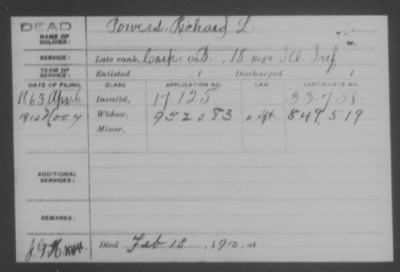 DEAD
NAME OF SOLDIER: Powers, Richard L.
SERVICE: Late rank, Corp Co. B, 18 Reg't Ill. Inf
TERM OF SERVICE: Enlisted , 1 Discharged , 1
DATE OF FILING. CLASS. APPLICATION NO. LAW. CERTIFICATE NO.
1863 Apr 6 Invalid, 17 125
1910 Nov 7 Widow, 952083 849,519
Minor,
ADDITIONAL SERVICES:
REMARKS:
Died Feb 18, 1910, at